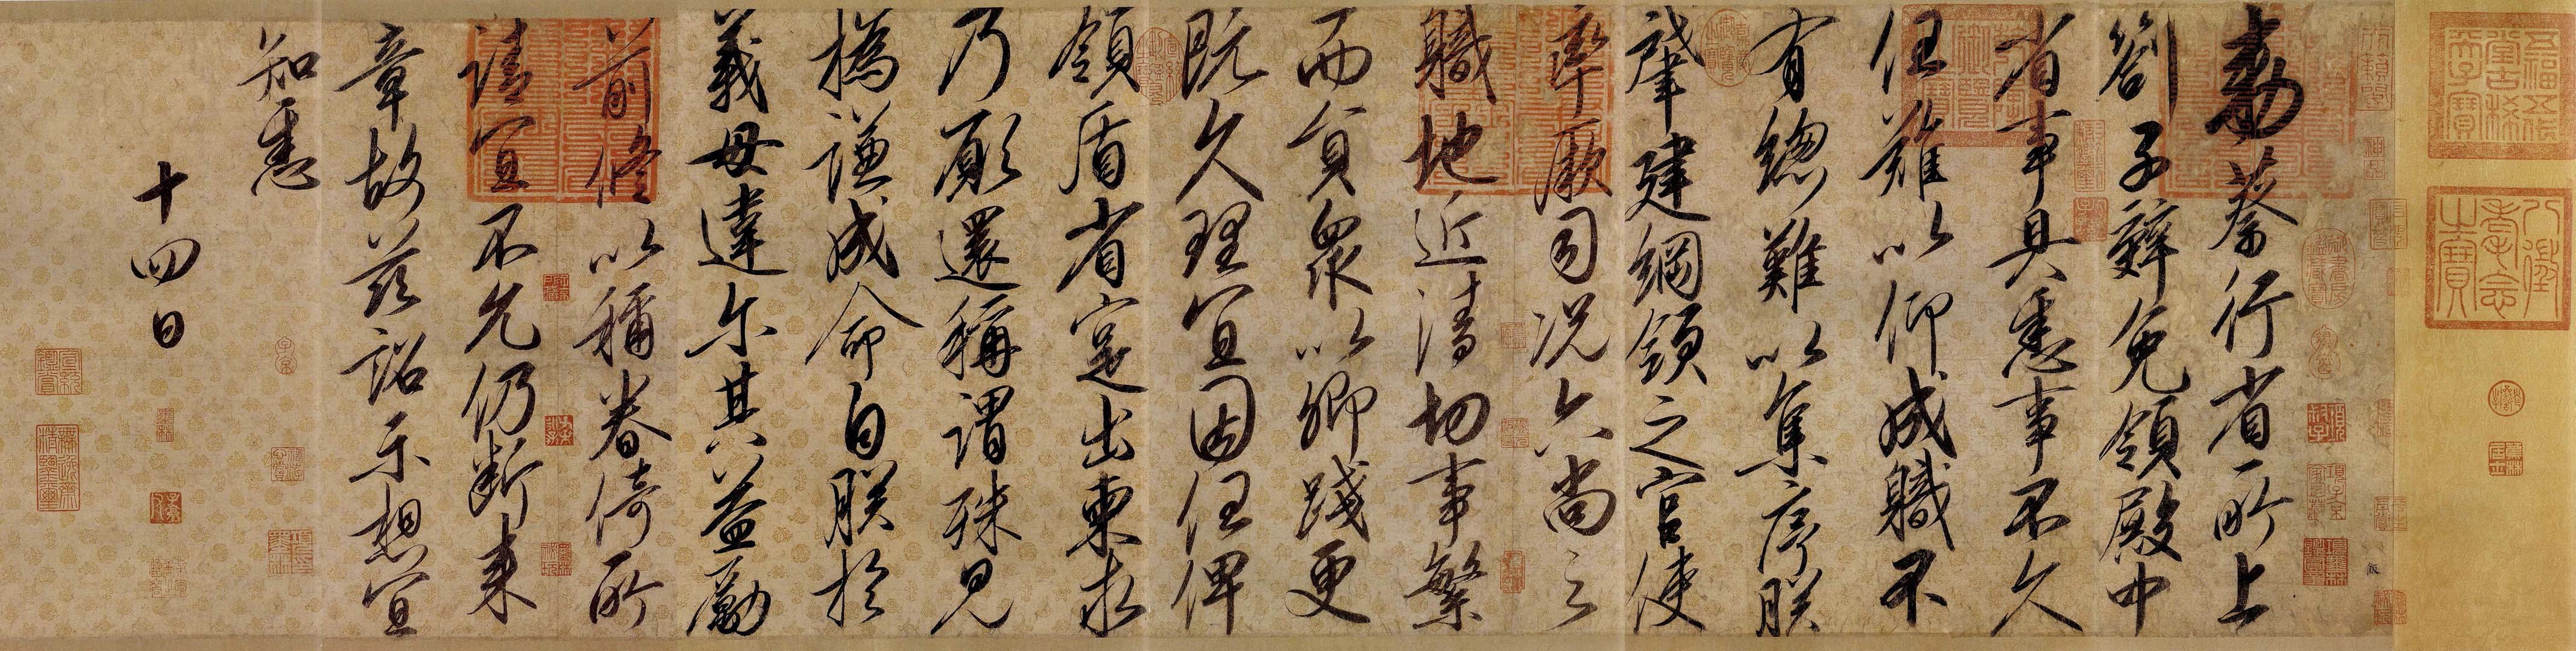 八徵耄念之寶
五福五代堂古稀天子寶
敕蔡行省所上
劄子辭免領殿中
省事具悉事不久
任難以仰成職不
有總難以集序朕
肇建綱領之官使
率厥司況六尚之
職地近清切事繁
而員衆以卿踐更
既久理宜因任俾
領盾省寔出柬求
乃願還稱謂殊見
撝謙成命自朕於
義毋違尔其益勵
前修以稱眷倚所
請宜不允仍斷來
章故茲詔示想宜
知悉
十四日